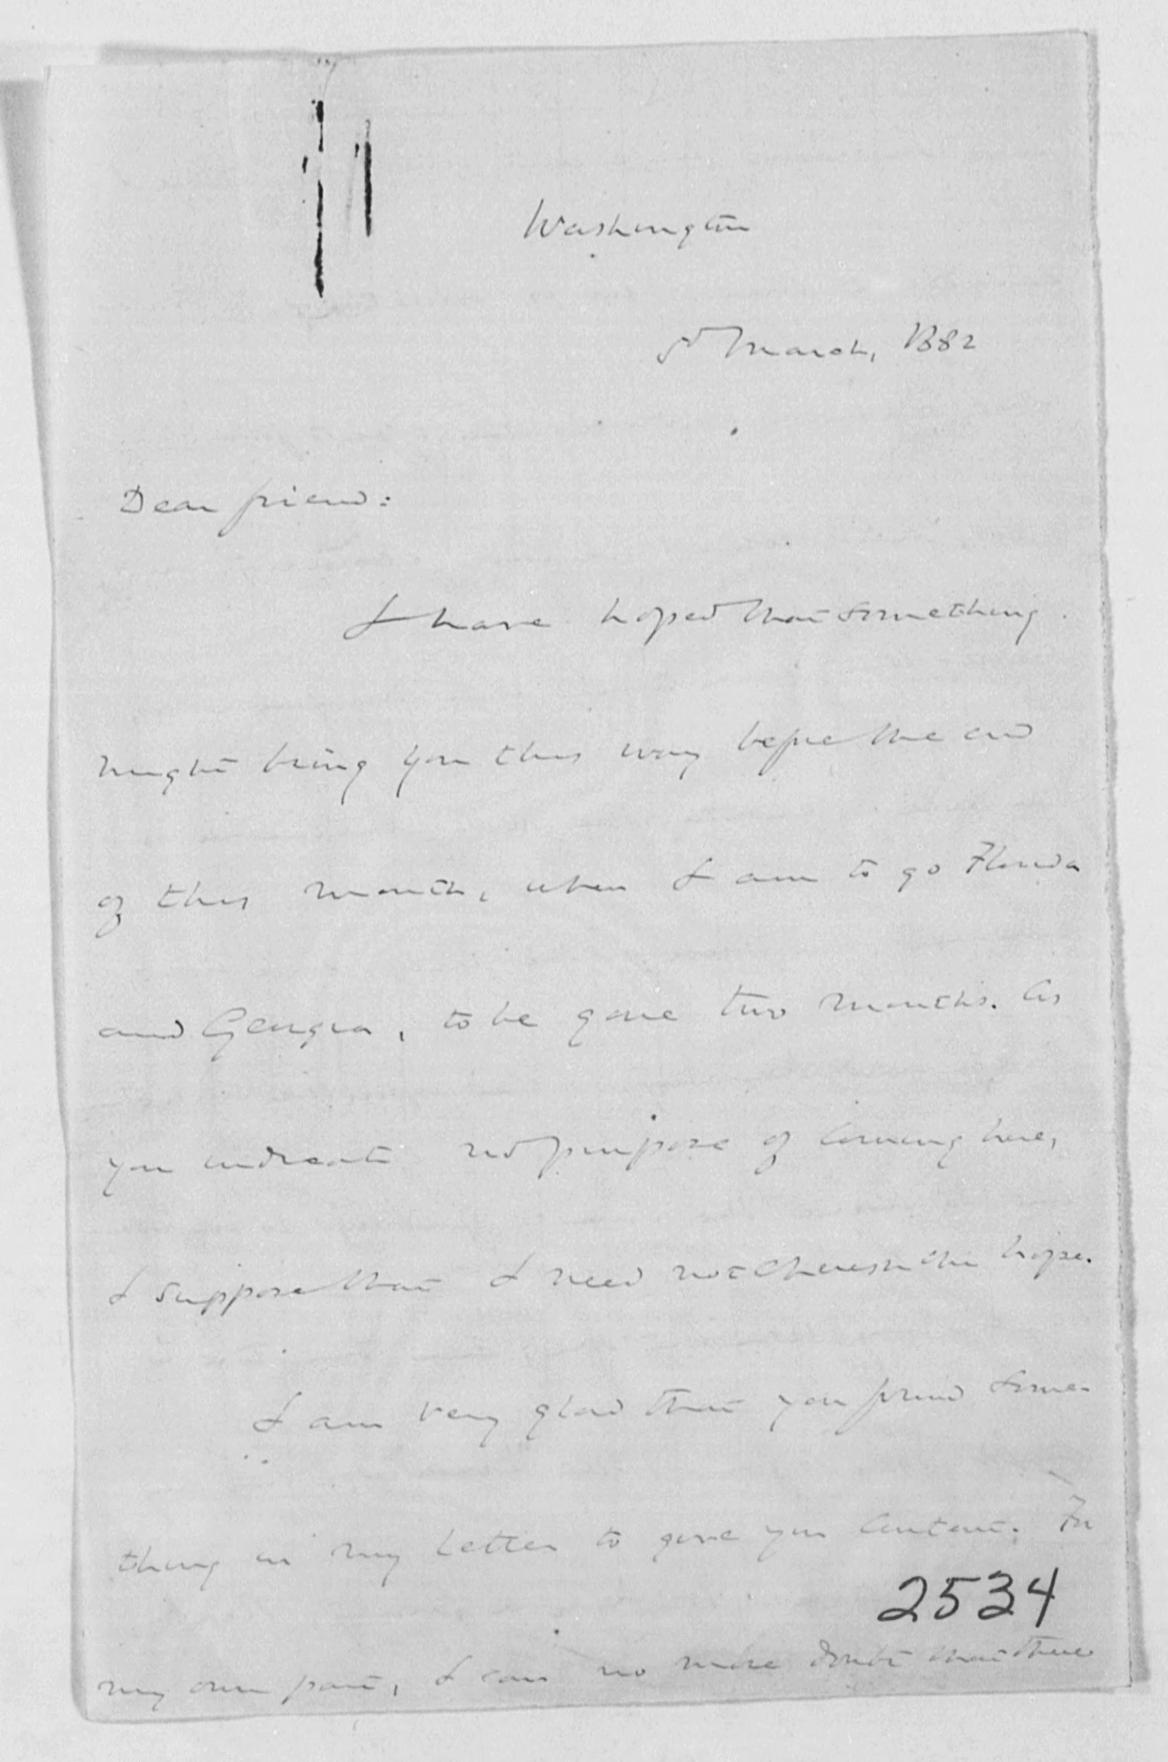 Washington
5 March, 1882
Dear friend:
I have hoped that something
might bring you this way before the end
of this month, when I am to go Florida
and Georgia, to be gone two months. As
you indicate no purpose of coming here,
I suppose that I need not cherish the hope.
I am very glad that you found some-
thing in my letter to give you content. For
2534
my own part, I can no more doubt that there